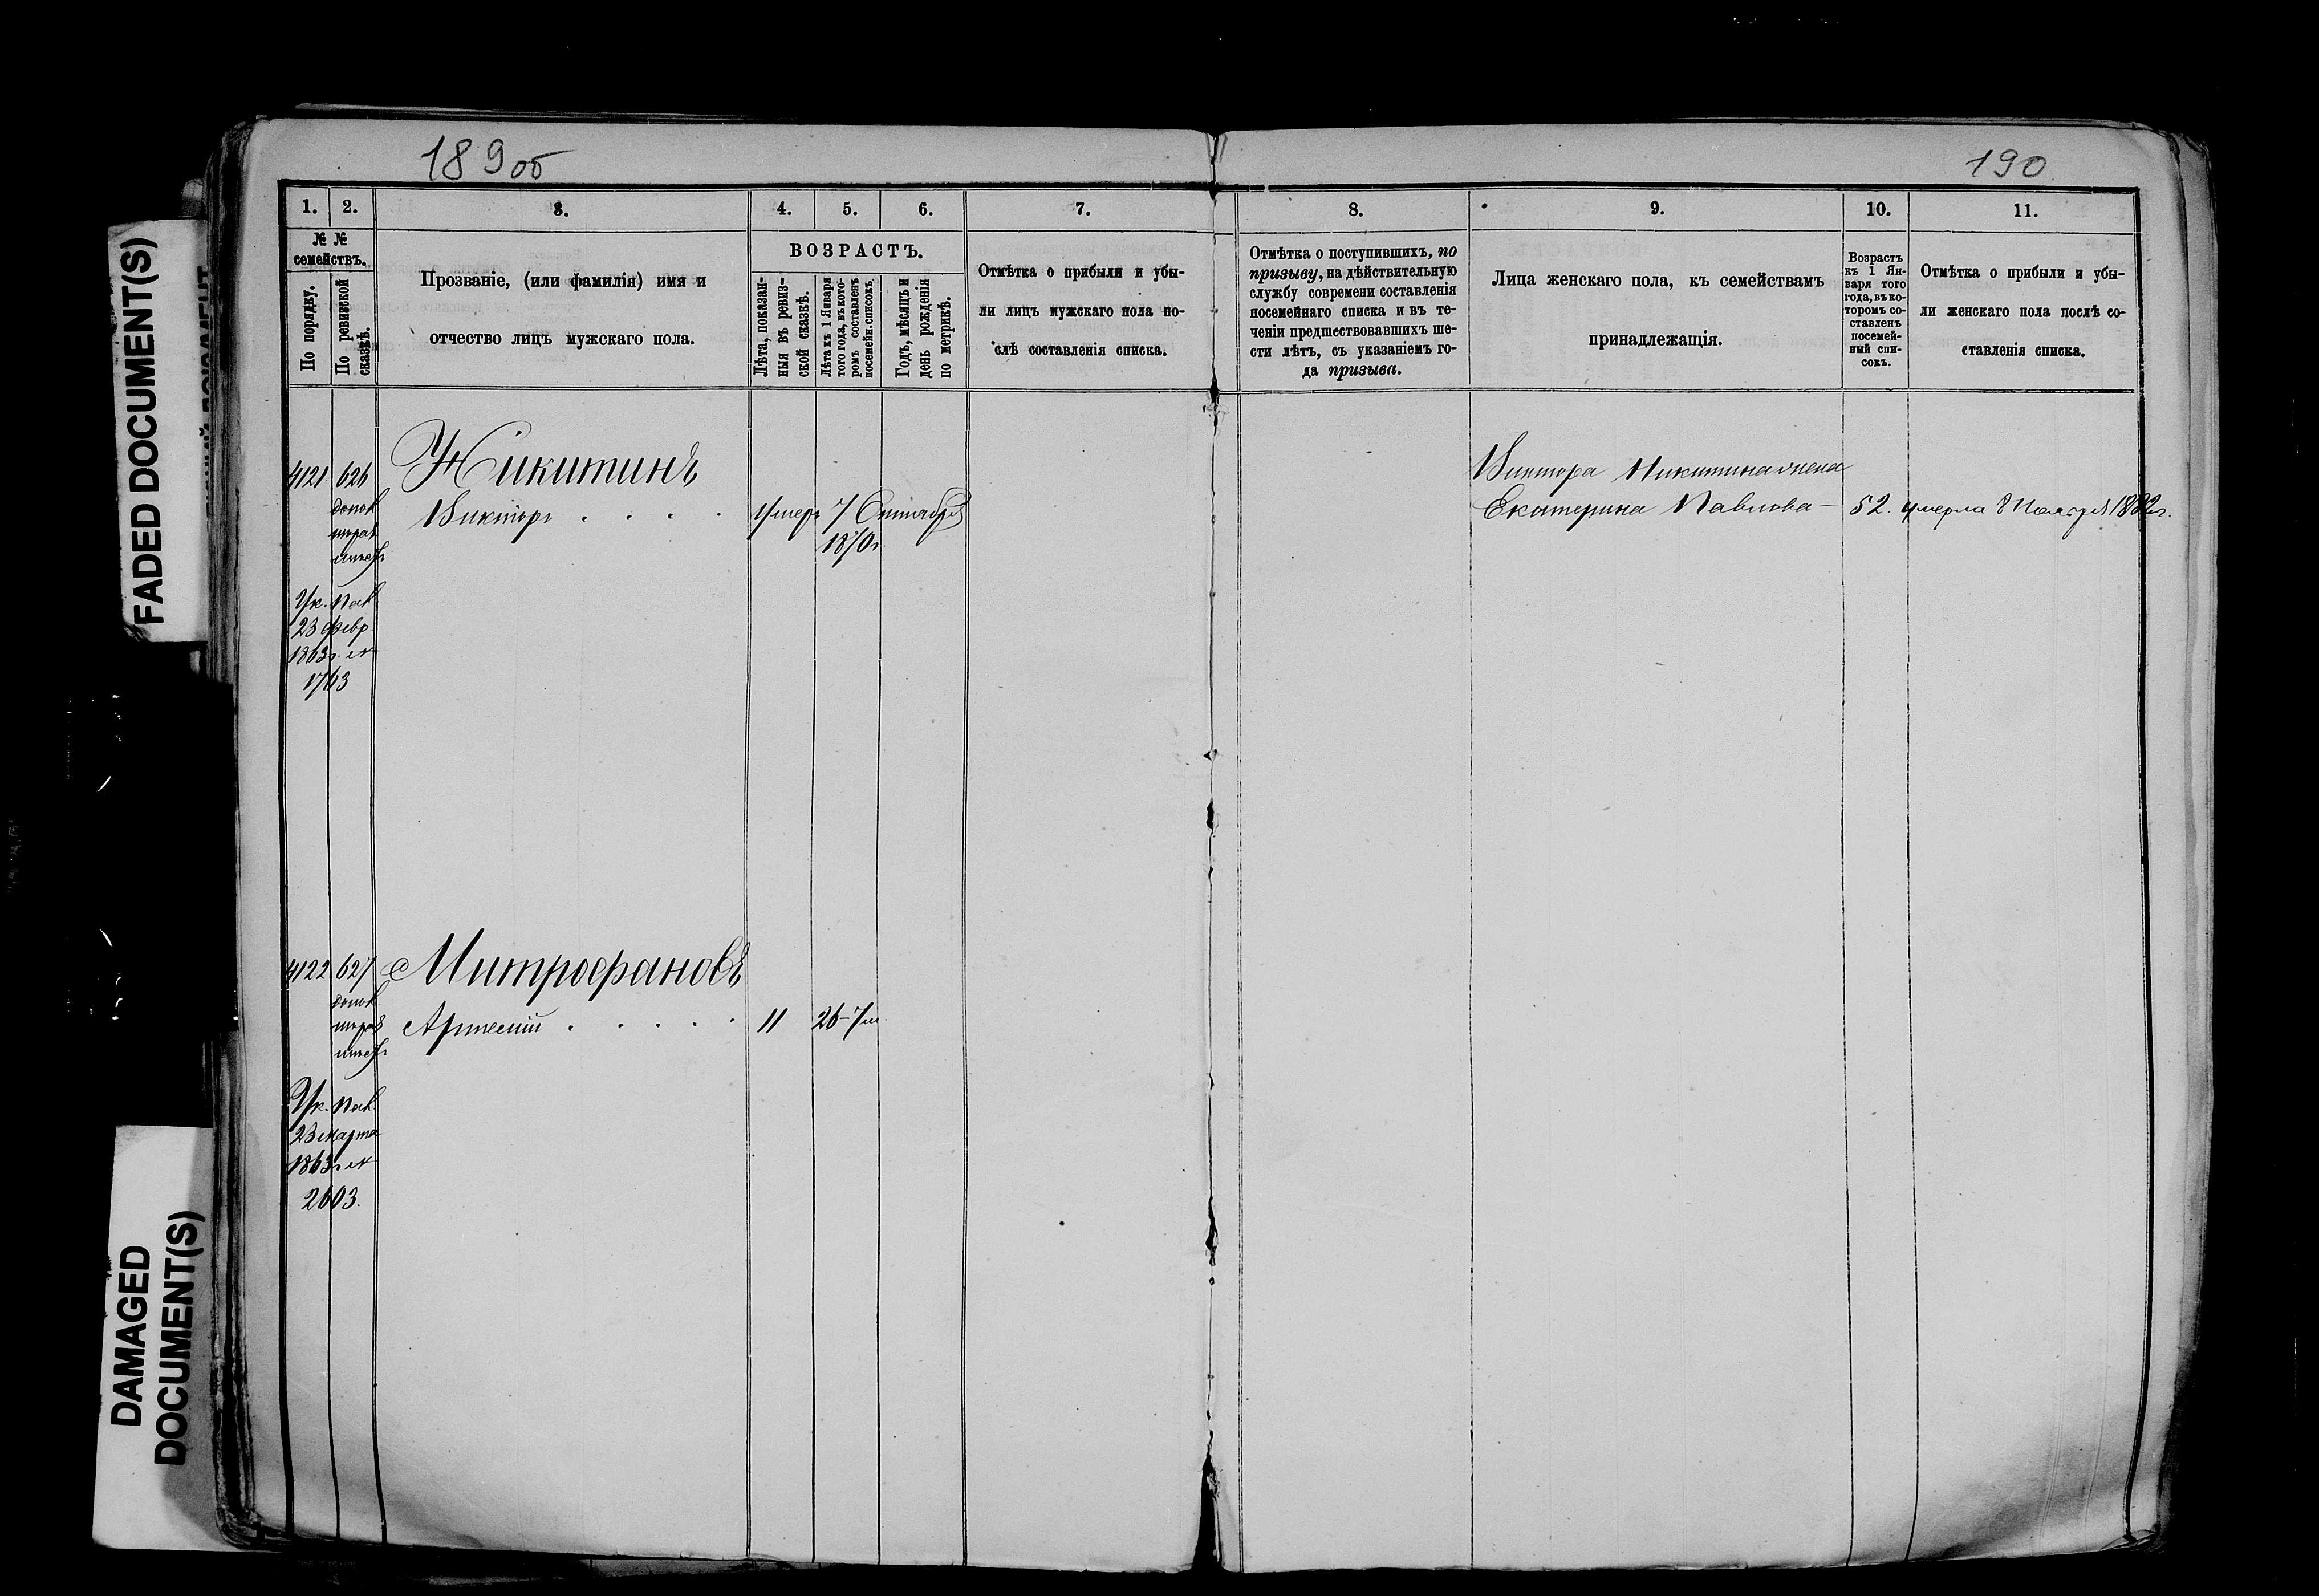 189об
190
FADED DOCUMENT(S)
DAMAGED
DOCUMENT(S)
1.
2.
3.
4.
5.
6.
7.
8.
9.
10.
11.
№ №
семействъ.
По порядку.
По ревизской
сказкѣ.
Прозваніе, (или фамилія) имя и
отчество лицъ мужскаго пола.
ВОЗРАСТЪ.
Лѣта, показан-
ныя въ ревиз-
ской сказкѣ.
Лѣта къ 1 Января
того года, въ кото-
ромъ составленъ
посемейн. списокъ.
Годъ, мѣсяцъ и
день рожденія
по метрикѣ.
Отмѣтка о прибыли и убы-
ли лицъ мужскаго пола по-
слѣ составленія списка.
Отмѣтка о поступившихъ, по
призыву, на дѣйствительную
службу современи составленія
посемейнаго списка и въ те-
ченіи предшествовавшихъ ше-
сти лѣтъ, съ указаніемъ го-
да призыва.
Лица женскаго пола, къ семействамъ
принадлежащія.
Возрастъ
къ 1 Ян-
варя того
года, въ ко-
торомъ со-
ставленъ
посемей-
ный спи-
сокъ.
Отмѣтка о прибыли и убы-
ли женскаго пола послѣ со-
ставленія списка.
4121 626 Никитинъ
Викторъ умеръ 7 Октября
1870г
Ук. Пал
23 февр.
1863г. №
1763
Виктора Никитина жена
Екатерина Павлова – 52. умерла 8 Ноября 1882г.
4122 627 Митрофановъ
Арсений 11 26-7м.
Ук. Пал
23 марта
1863г №
2603.